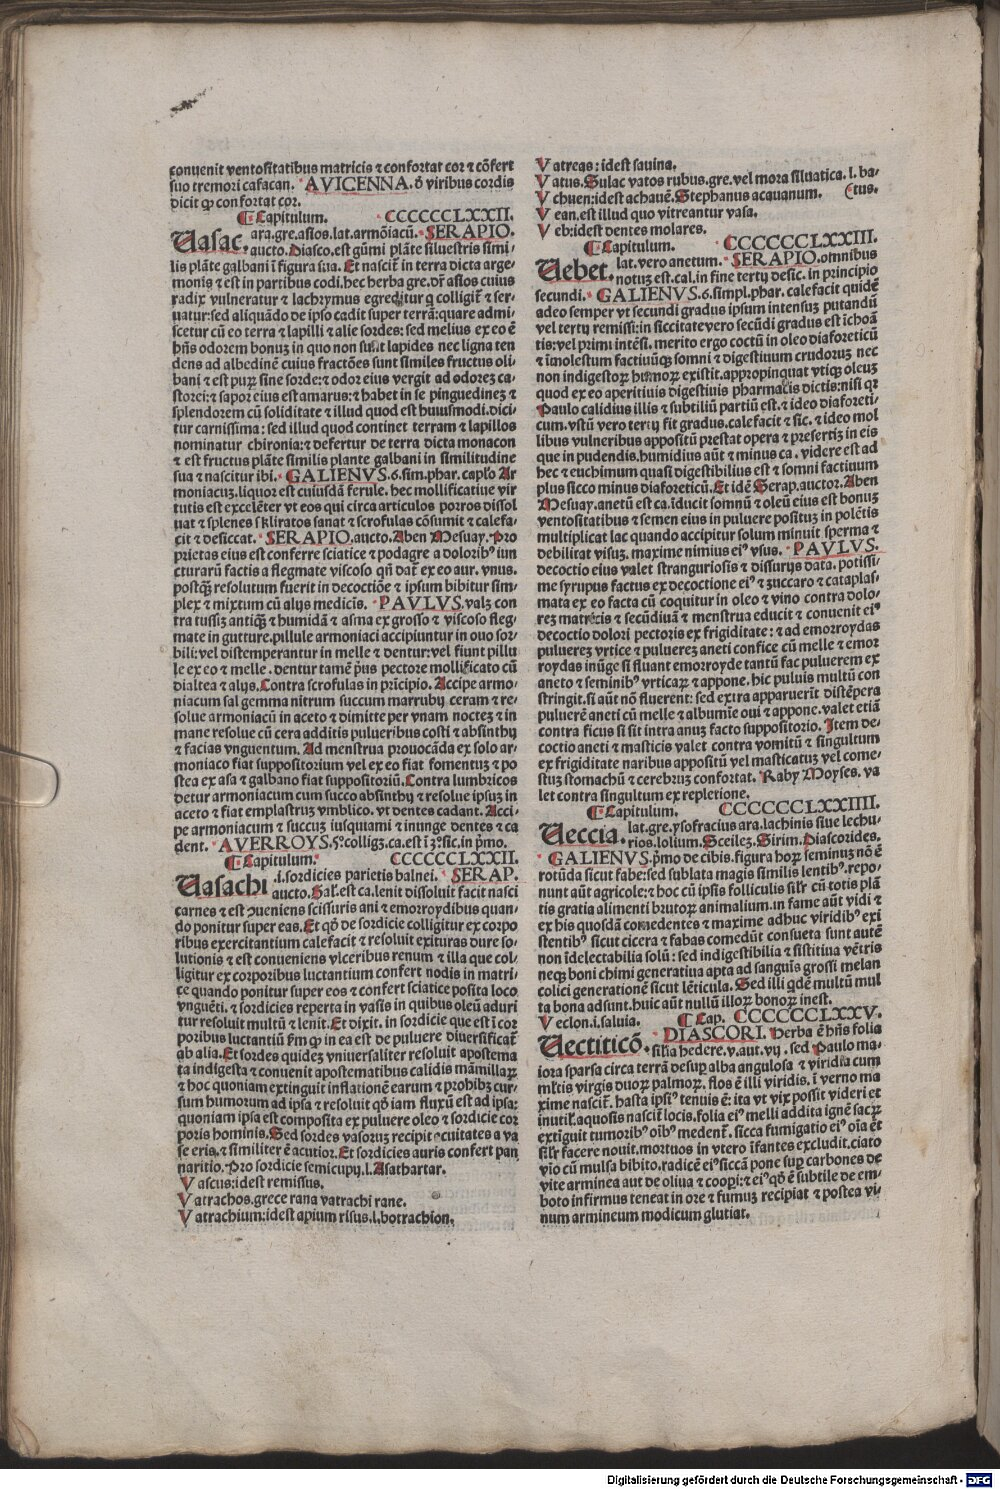 conuenit ventositatibus matricis ⁊ confortat cor ⁊ cõfert
suo tremori cafacan. AVICENNA. ð viribus cordis
dicit ꝙ confortat cor.
Capitulum. CCCCCCLXXII.
Uasac. ara.gre.asios.lat.armõiacũ. SERAPIO.
aucto. Diasco.est gũmi plãte siluestris simi-
lis plãte galbani ĩ figura sua. Et nascit̃ in terra dicta arge-
monis ⁊ est in partibus codi.hec herba gre.dr̃ asios cuius
radix vulneratur ⁊ lachrymus egreditur q colligit̃ ⁊ ser-
uatur:sed aliquãdo de ipso cadit super terrã:quare admi-
scetur cũ eo terra ⁊ lapilli ⁊ alie sordes: sed melius ex eo ẽ
hñs odorem bonuꝫ in quo non sunt lapides nec ligna ten
dens ad albedinẽ cuius fractões sunt similes fructus oli-
bani ⁊ est puꝝ sine sorde:⁊ odor eius vergit ad odoreꝫ ca-
storei:⁊ sapor eius est amarus:⁊ habet in se pinguedineꝫ ⁊
splendorem cũ soliditate ⁊ illud quod est huiusmodi.dici-
tur carnissima: sed illud quod continet terram ⁊ lapillos
nominatur chironia:⁊ defertur de terra dicta monacon
⁊ est fructus plãte similis plante galbani in similitudine
sua ⁊ nascitur ibi. GALIENVS.6.sim.phar.capło Ar
moniacuꝫ.liquor est cuiusdã ferule.hec mollificatiue vir
tutis est excelẽter vt eos qui circa articulos porros dissol
uat ⁊ splenes skliratos sanat ⁊ scrofulas cõsumit ⁊ calefa-
cit ⁊ desiccat. SERAPIO.aucto. Aben Mesuay. Pro
prietas eius est conferre sciatice ⁊ podagre a doloribꝰ iun
cturarũ factis a flegmate viscoso qñ dat̃ ex eo aur. vnus.
postꝗ̃ resolutum fuerit in decoctiõe ⁊ ipsum bibitur sim-
plex ⁊ mixtum cũ alijs medicĩs. PAVLVS.valꝫ con
tra tussiꝫ antiquã ⁊ humidã ⁊ asma ex grosso ⁊ viscoso fleg
mate in gutture.pillule armoniaci accipiuntur in ouo sor-
bili:vel distemperantur in melle ⁊ dentur:vel fiunt pillu
le ex eo ⁊ melle. dentur tamẽ pꝰus pectore mollificato cũ
dialtea ⁊ alijs. Contra scrofulas in prĩcipio. Accipe armo-
niacum sal gemma nitrum succum marrubij ceram ⁊ re-
solue armoniacũ in aceto ⁊ dimitte per vnam nocteꝫ ⁊ in
mane resolue cũ cera additis pulueribus costi ⁊ absinthij
⁊ facias vnguentum. Ad menstrua prouocãda ex solo ar-
moniaco fiat suppositorium vel ex eo fiat fomentuꝫ ⁊ po
stea ex asa ⁊ galbano fiat suppositoriũ. Contra lumbricos
detur armoniacum cum succo absinthij ⁊ resolue ipsuꝫ in
aceto ⁊ fiat emplastruꝫ vmblico. vt dentes cadant. Acci-
pe armoniacum ⁊ succuꝫ iusquiami ⁊ inunge dentes ⁊ ca
dent. AVERROYS.5.collig3.ca.est ĩ 3.sic.in pꝰmo.
Capitulum. CCCCCCLXXII.
Uasachi .i.sordicies parietis balnei. SERAP.
aucto. Sal.est ca.lenit dissoluit facit nasci
carnes ⁊ est ꝯueniens scissuris ani ⁊ emorroydibus quan-
do ponitur super eas. Et qð de sordicie colligitur ex corpo
ribus exercitantium calefacit ⁊ resoluit exituras dure so-
lutionis ⁊ est conueniens vlceribus renum ⁊ illa que col-
ligitur ex corporibus luctantium confert nodis in matri-
ce quando ponitur super eos ⁊ confert sciatice posita loco
vnguẽti. ⁊ sordicies reperta in vasis in quibus oleũ aduri
tur resoluit multũ ⁊ lenit. Et dixit. in sordicie que est ĩ cor
poribus luctantiũ ẽm ꝙ in ea est de puluere diuersificat̃
ab alia. Et sordes quideꝫ vniuersaliter resoluit apostema
ta indigesta ⁊ conuenit apostematibus calidis mãmillaꝝ
⁊ hoc quoniam extinguit inflationẽ earum ⁊ prohibꝫ cur-
sum humorum ad ipsa ⁊ resoluit qð iam fluxũ est ad ipsa:
quoniam ipsa est composita ex puluere oleo ⁊ sordicie cor
poris hominis. Sed sordes vasoruꝫ recipit acuitates a va
se eris.⁊ similiter ẽ acutior. Et sordicies auris confert pan
naritio. Pro sordicie semicupij.l. Asathartar.
Vascus:idest remissus.
Vatrachos.grece rana vatrachi rane.
Vatrachium:idest apium risus.l.botrachion.
Vatreas:idest sauina.
Vatus. Sulac vatos rubus.gre.vel mora siluatica.l.ba-
Vchuen:idest achauẽ. Stephanus acquanum. ctus.
Vean.est illud quo vitreantur vasa.
Veb:idest dentes molares.
Capitulum. CCCCCCLXXIII.
Uebet. lat.vero anetum. SERAPIO.omnibus
notuꝫ est.cal.in fine tertij desic.in principio
secundi. GALIENVS.6.simpl.phar.calefacit quidẽ
adeo semper vt secundi gradus ipsum intensuꝫ putandũ
vel tertij remissi:in siccitatevero secũdi gradus est ĩchoã
tis:vel primi intẽsi.merito ergo coctũ in oleo diaforeticũ
⁊ ĩmolestum factiuũqꝫ somni ⁊ digestiuum crudoruꝫ nec
non indigestoꝝ humoꝝ existit.appropinquat vtiqꝫ oleuꝫ
quod ex eo aperitiuis digestiuis pharmacis dictis:nisi qꝛ
Paulo calidius illis ⁊ subtiliũ partiũ est.⁊ ideo diaforeti-
cum.vstũ vero tertij fit gradus.calefacit ⁊ sic.⁊ ideo mol
libus vulneribus appositũ prestat opera ⁊ presertiꝫ in eis
que in pudendis.humidius aũt ⁊ minus ca. videre est ad
hec ⁊ euchimum quasi digestibilius est ⁊ somni factiuum
plus sicco minus diaforeticũ. Et idẽ Serap.auctor. Aben
Mesuay.anetũ est ca.ĩducit somnũ ⁊ oleũ eius est bonuꝫ
ventositatibus ⁊ semen eius in puluere posituꝫ in polẽtis
multiplicat lac quando accipitur solum minuit sperma ⁊
debilitat visuꝫ.maxime nimius eiꝰ vsus. PAVLVS.
decoctio eius valet stranguriosis ⁊ dissurijs data. potissi-
me syrupus factus ex decoctione eiꝰ ⁊ zuccaro ⁊ cataplas-
mata ex eo facta cũ coquitur in oleo ⁊ vino contra dolo-
reꝫ matricis ⁊ secũdiuã ⁊ menstrua educit ⁊ conuenit eiꝰ
decoctio dolori pectoris ex frigiditate: ⁊ ad emorroydas
puluereꝫ vrtice ⁊ puluereꝫ aneti confice cũ melle ⁊ emor
roydas inũge si fluant emorroyde tantũ fac puluerem ex
aneto ⁊ seminibꝰ vrticaꝝ ⁊ appone.hic puluis multũ con
stringit.si aũt nõ fluerent: sed extra apparuerĩt distẽpera
puluerẽ aneti cũ melle ⁊ albumĩe oui ⁊ appone.valet etiã
contra ficus si sit intra anuꝫ facto suppositorio. Item de-
coctio aneti ⁊ masticis valet contra vomitũ ⁊ singultum
ex frigiditate naribus appositũ vel masticatuꝫ vel come-
stuꝫ stomachũ ⁊ cerebruꝫ confortat. Raby Moyses. va
let contra singultum ex repletione.
Capitulum. CCCCCCLXXIIII.
Ueccia. lat.gre.ysofracius ara.lachinis siue lechu-
rios.lolium. Sceileꝫ. Sirim. Diascorides.
GALIENVS.pꝰmo de cibis.figura hoꝝ seminuꝫ nõ ẽ
rotũda sicut fabe:sed sublata magis similis lentibꝰ.repo-
nunt aũt agricole:⁊ hoc cũ ipsis folliculis silr̃ cũ totis plã
tis gratia alimenti brutoꝝ animalium.in fame aũt vidi ⁊
ex his quosdã comedentes ⁊ maxime adhuc viridibꝰ exi
stentibꝰ sicut cicera ⁊ fabas comedũt consueta sunt autẽ
non ĩdelectabilia solũ: sed indigestibilia ⁊ sistitiua vẽtris
neqꝫ boni chimi generatiua apta ad sanguĩs grossi melan
colici generationẽ sicut lẽticula. Sed illi qdẽ multũ mul
ta bona adsunt.huic aũt nullũ illoꝝ bonoꝝ inest.
Veclon.i.saluia. Cap. CCCCCCLXXV.
Uectiticõ. DIASCORI. Herba ẽ hñs folia
silia hedere.v.aut.vij. sed Paulo ma-
iora sparsa circa terrã desup alba angulosa ⁊ viridia cum
mltis virgis duoꝝ palmoꝝ. flos ẽ illi viridis. ĩ verno ma
xime nascit̃. hasta ipsiꝰ tenuis ẽ: ita vt vix possit videri et
inutil̃.aquosis nascit̃ locis.folia eiꝰ melli addita ignẽ sacꝝ
extiguit tumoribꝰ oĩbꝰ medent̃. sicca fumigatio eiꝰ oĩa ẽt
silr̃ facere nouit.mortuos in vtero ĩfantes excludit.ciato
vio cũ mulsa bibito.radicẽ eiꝰ siccã pone sup carbones de
vite arminea aut de oliua ⁊ coopi:⁊ eiꝰ qð ẽ subtile de em-
boto infirmus teneat in ore ⁊ fumuꝫ recipiat ⁊ postea vi
num armineum modicum glutiat.
Digitalisierung gefördert durch die Deutsche Forschungsgemeinschaft - DFG